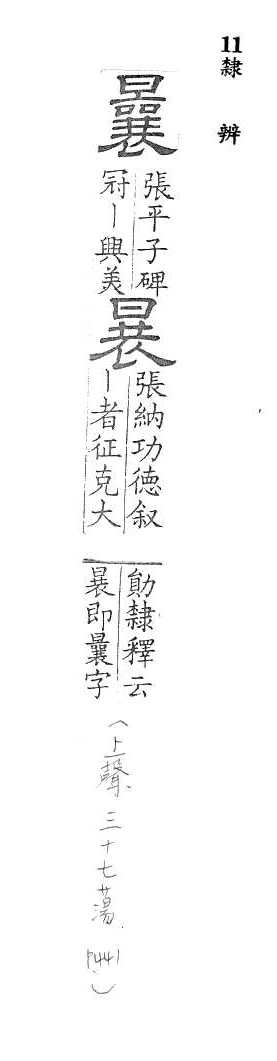 11 隸辨
曩
張平子碑
冠丨興美
張納功德叙
丨者征克大
勛隸釋云
即曩字
(上聲 三十七蕩 P441)